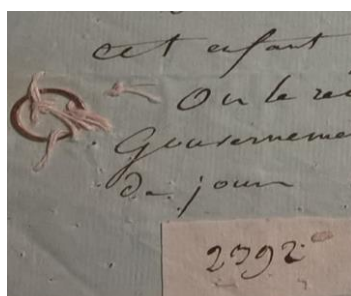 cet enfant
On le
Gouverneme
de jour
2392